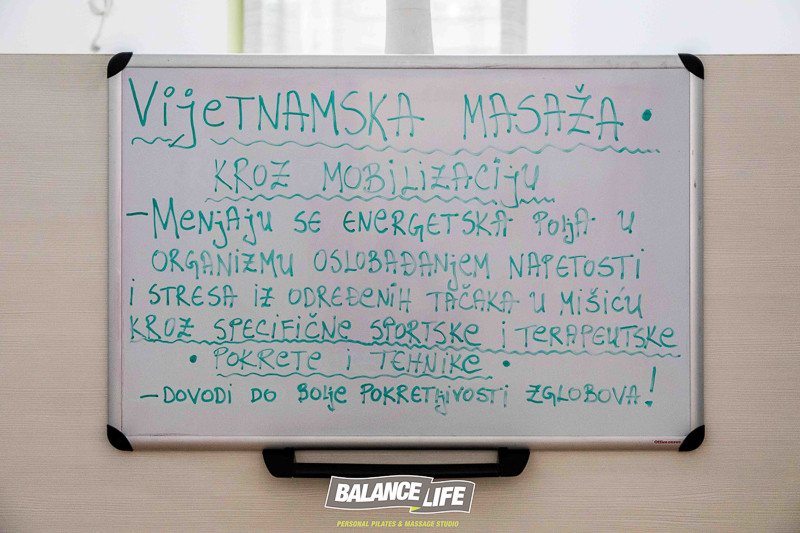 VijeTNAMSKA MASAŽA •
KROZ MOBILIZACIJU
- MENJAJU SE ENERGETSKA POLJA U
ORGANIZMU OSLOBAĐANJEM NAPETOSTI
I STRESA IZ ODREĐENIH TAČAKA U MIŠIĆU
KROZ SPECIFIČNE SPORTSKE I TERAPEUTSKE
• POKRETE I TEHNIKE •
- DOVODI DO BOLJE POKRETLJIVOSTI ZGLOBOVA!
BALANCE LIFE
PERSONAL PILATES & MASSAGE STUDIO